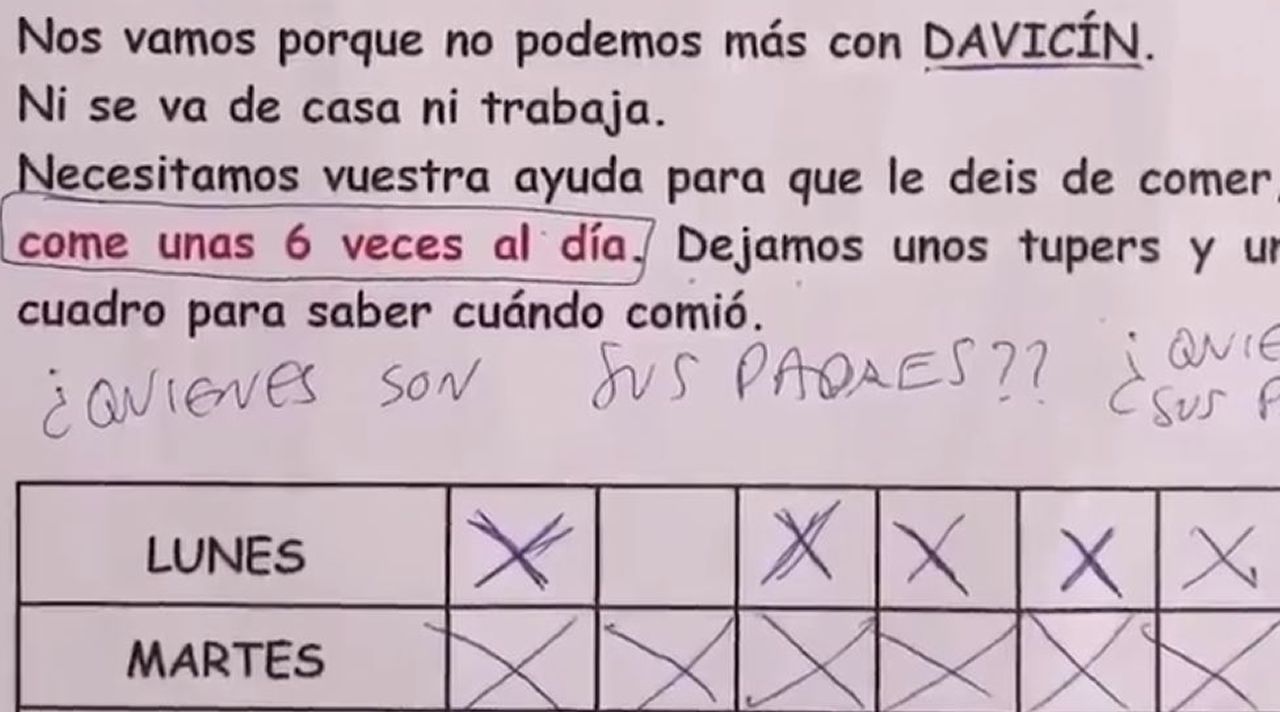 Nos vamos porque no podemos más con DAVICÍN.
Ni se va de casa ni trabaja.
Necesitamos vuestra ayuda para que le deis de comer,
come unas 6 veces al día. Dejamos unos tupers y un
cuadro para saber cuándo comió.
¿QUIENES SON SUS PADRES?? ¿QUIE
¿SUS P
LUNES X X X X X
MARTES X X X X X X